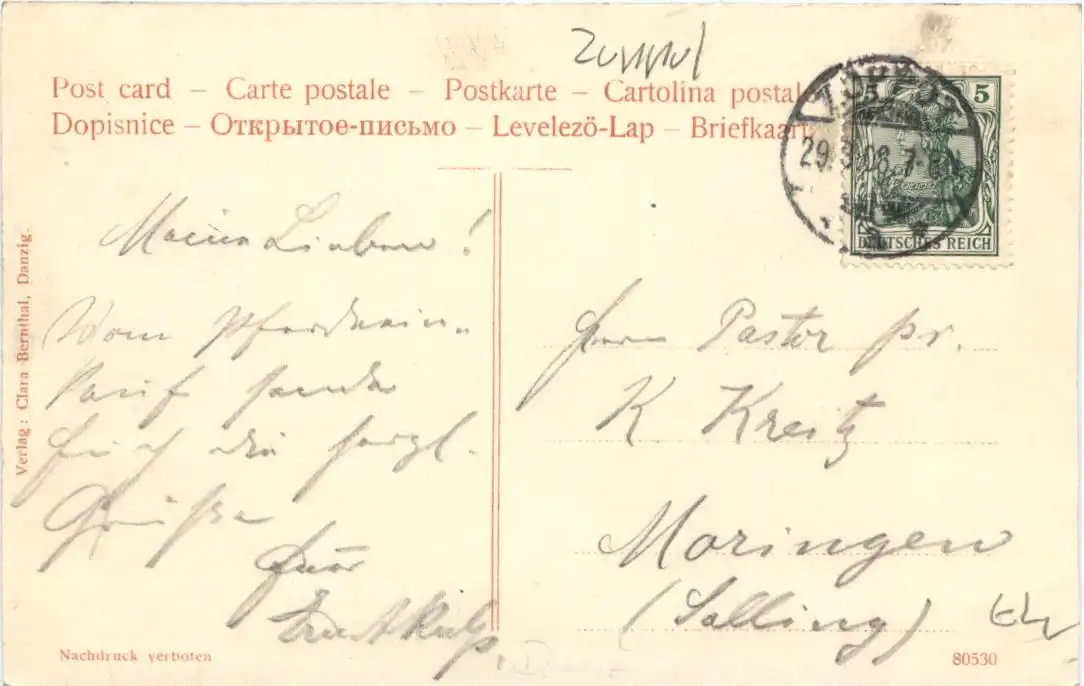 Post card – Carte postale – Postkarte – Cartolina postale
Dopisnice – Открытое-письмо – Levelezö-Lap – Briefkaart
29.3.08.7-8N.
5
DEUTSCHES REICH
Verlag: Clara Bernthal, Danzig.
Meine Lieben!
Vom Pferdeein-
kauf sendet
Euch die herzl.
Grüße
Euer
Herrn Pastor pr.
K. Kreitz
Moringen
(Solling)
Nachdruck verboten
80530